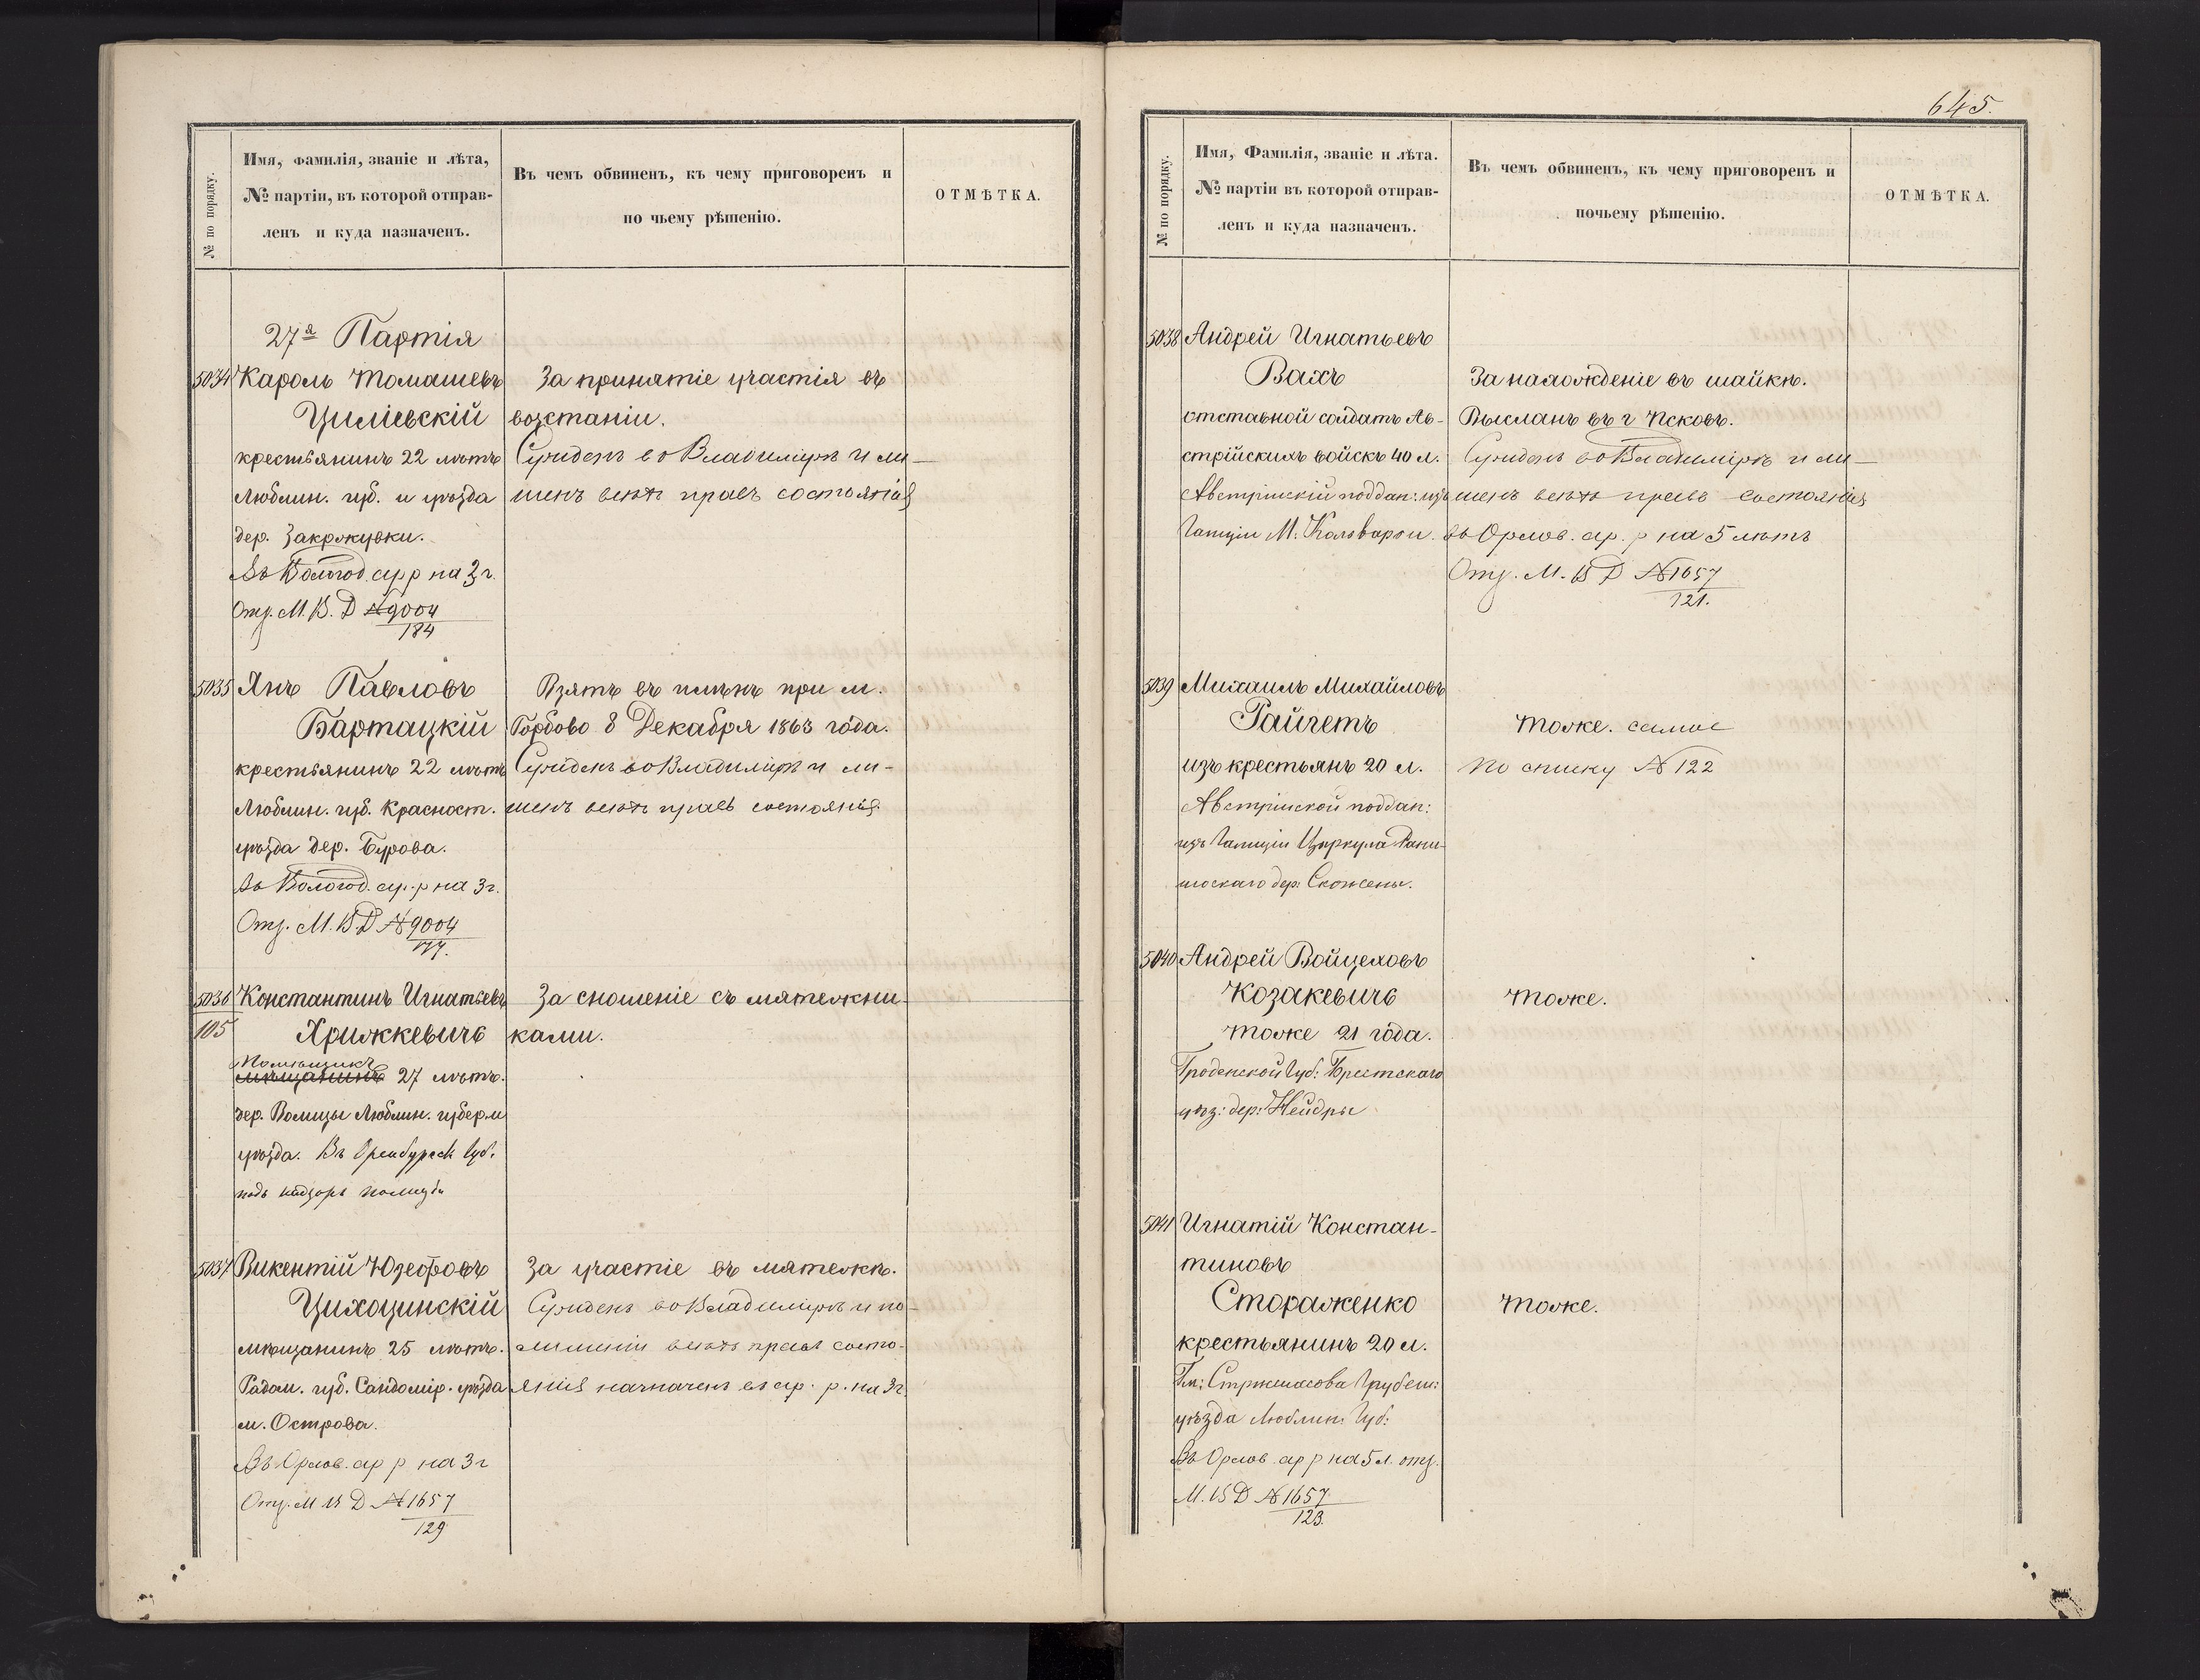 № по порядку.
Имя, фамилія, званіе и лѣта,
№ партіи, въ которой отправ-
ленъ и куда назначенъ.
Въ чемъ обвиненъ, къ чему приговоренъ и
по чьему рѣшенію.
ОТМѢТКА.
27я Партія
5034 Кароль Томашевъ
Цилiевскій
крестьянинъ 22 лѣтъ
Люблин. губ. и уѣзда
дер. Закржувки.
Въ Вологод. ар р на 3 г.
Отз. М. В. Д №9004
184
За принятіе участія въ
возстаніи.
Сужденъ во Владимірѣ и ли-
шенъ всѣхъ правъ состоянія
5035 Янъ Павловъ
Бартацкій
крестьянинъ 22 лѣтъ
Люблин. губ. Красност.
уѣзда дер. Бурова.
Въ Вологод. ар. р на 3 г.
Отз. М. В. Д №9004
177.
Взятъ въ плѣнъ при м.
Горбово 8 Декабря 1863 года.
Сужденъ во Владимірѣ и ли-
шенъ всѣхъ правъ состоянія
5036 Константинъ Игнатьевъ
105 Хрижкевичъ
Помѣщикъ
мѣщанинъ 27 лѣтъ.
дер. Волицы Люблин. губерн.
уѣзда. Въ Оренбургск губ.
подъ надзоръ полиціи
За сношеніе съ мятежни-
ками.
5037 Викентій Юзефовъ
Цихоцинскій
мѣщанинъ 25 лѣтъ.
Радом. губ. Сандомір. уѣзда
м. Острова.
Въ Орлов. ар р на 3 г
Отз. М В Д №1657
129
За участіе въ мятежѣ.
Сужденъ во Владимірѣ и по
лишеніи всѣхъ правъ состо-
янія назначенъ въ ар. р. на 3 г.
645.
№ по порядку.
Имя, Фамилія, званіе и лѣта.
№ партіи въ которой отправ-
ленъ и куда назначенъ.
Въ чемъ обвиненъ, къ чему приговоренъ и
почьему рѣшенію.
ОТМѢТКА.
5038 Андрей Игнатьевъ
Вахъ
отставной солдатъ Ав-
стрійскихъ войскъ 40 л.
Австрійскій поддан: изъ
Галиціи М. Кальваріи.
За нахожденіе въ шайкѣ.
Высланъ въ г Псковъ.
Сужденъ во Владимірѣ и ли-
шенъ всѣхъ правъ состоянія
въ Орлов. ар. р на 5 лѣтъ
Отз. М. В Д №1657
121.
5039 Михаилъ Михайловъ
Райгетъ
изъ крестьянъ 20 л.
Австрійской поддан:
изъ Галиціи Циркула
дер:
тоже. самое
по списку №122
5040 Андрей Войцеховъ
Козакевичъ
тоже 21 года.
Гродненской Губ: Брестскаго
уѣз: дер: Нейдры
тоже.
5041 Игнатій Констан-
тиновъ
Стораженко
крестьянинъ 20 л.
Гм: Грубеш:
уѣзда Люблин: Губ:
Въ Орлов. ар р на 5 л. отз.
М. В Д №1657
123.
тоже.